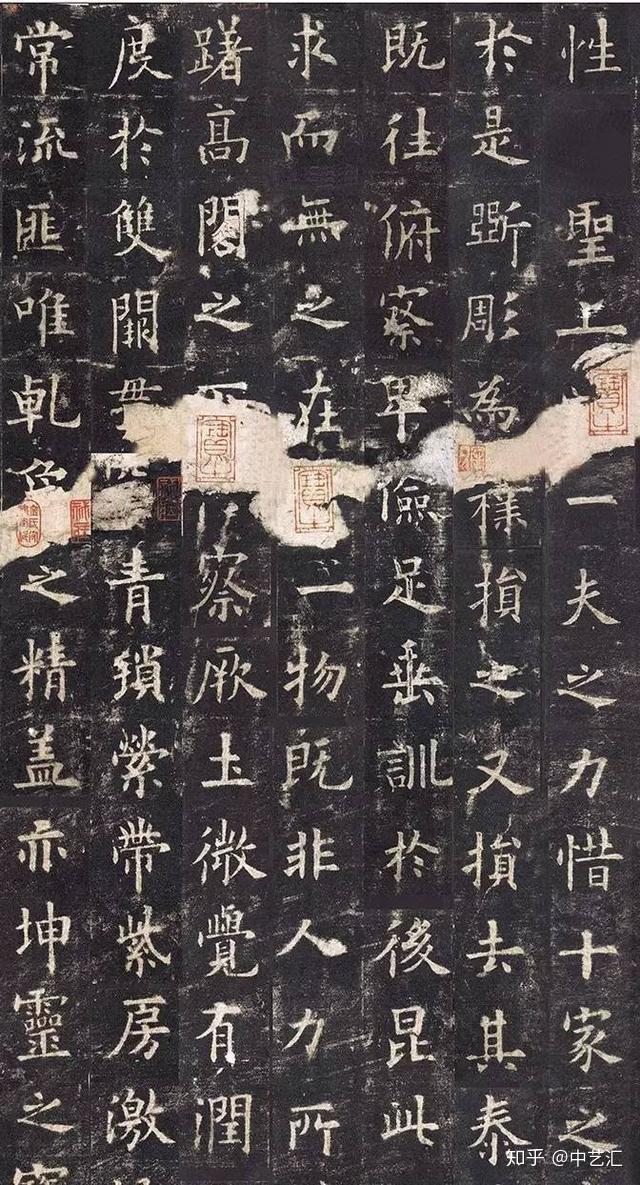 性 聖上一夫之力惜十家之
於是斲彫為樸損之又損去其泰
既往俯察卑儉足垂訓於後昆此
求而無之在一物既非人力所
躇高閣之察厥土微覺有潤
度於雙闕貫青瑣縈帶紫房激
常流匪唯乹象之精盖亦坤靈之
知乎 @中艺汇